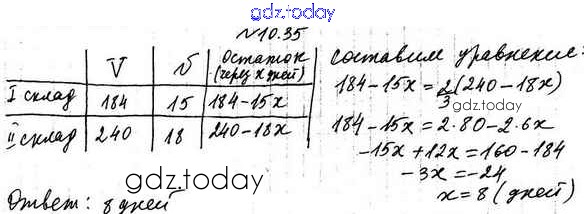 gdz.today
№10.35
V υ Остаток (через x дней)
I склад 184 15 184-15x
II склад 240 18 240-18x
Ответ: 8 дней
gdz.today
составим уравнение:
184-15x=2/3(240-18x)
gdz.today
184-15x=2·80-2·6x
-15x+12x=160-184
-3x=-24
x=8 (дней)